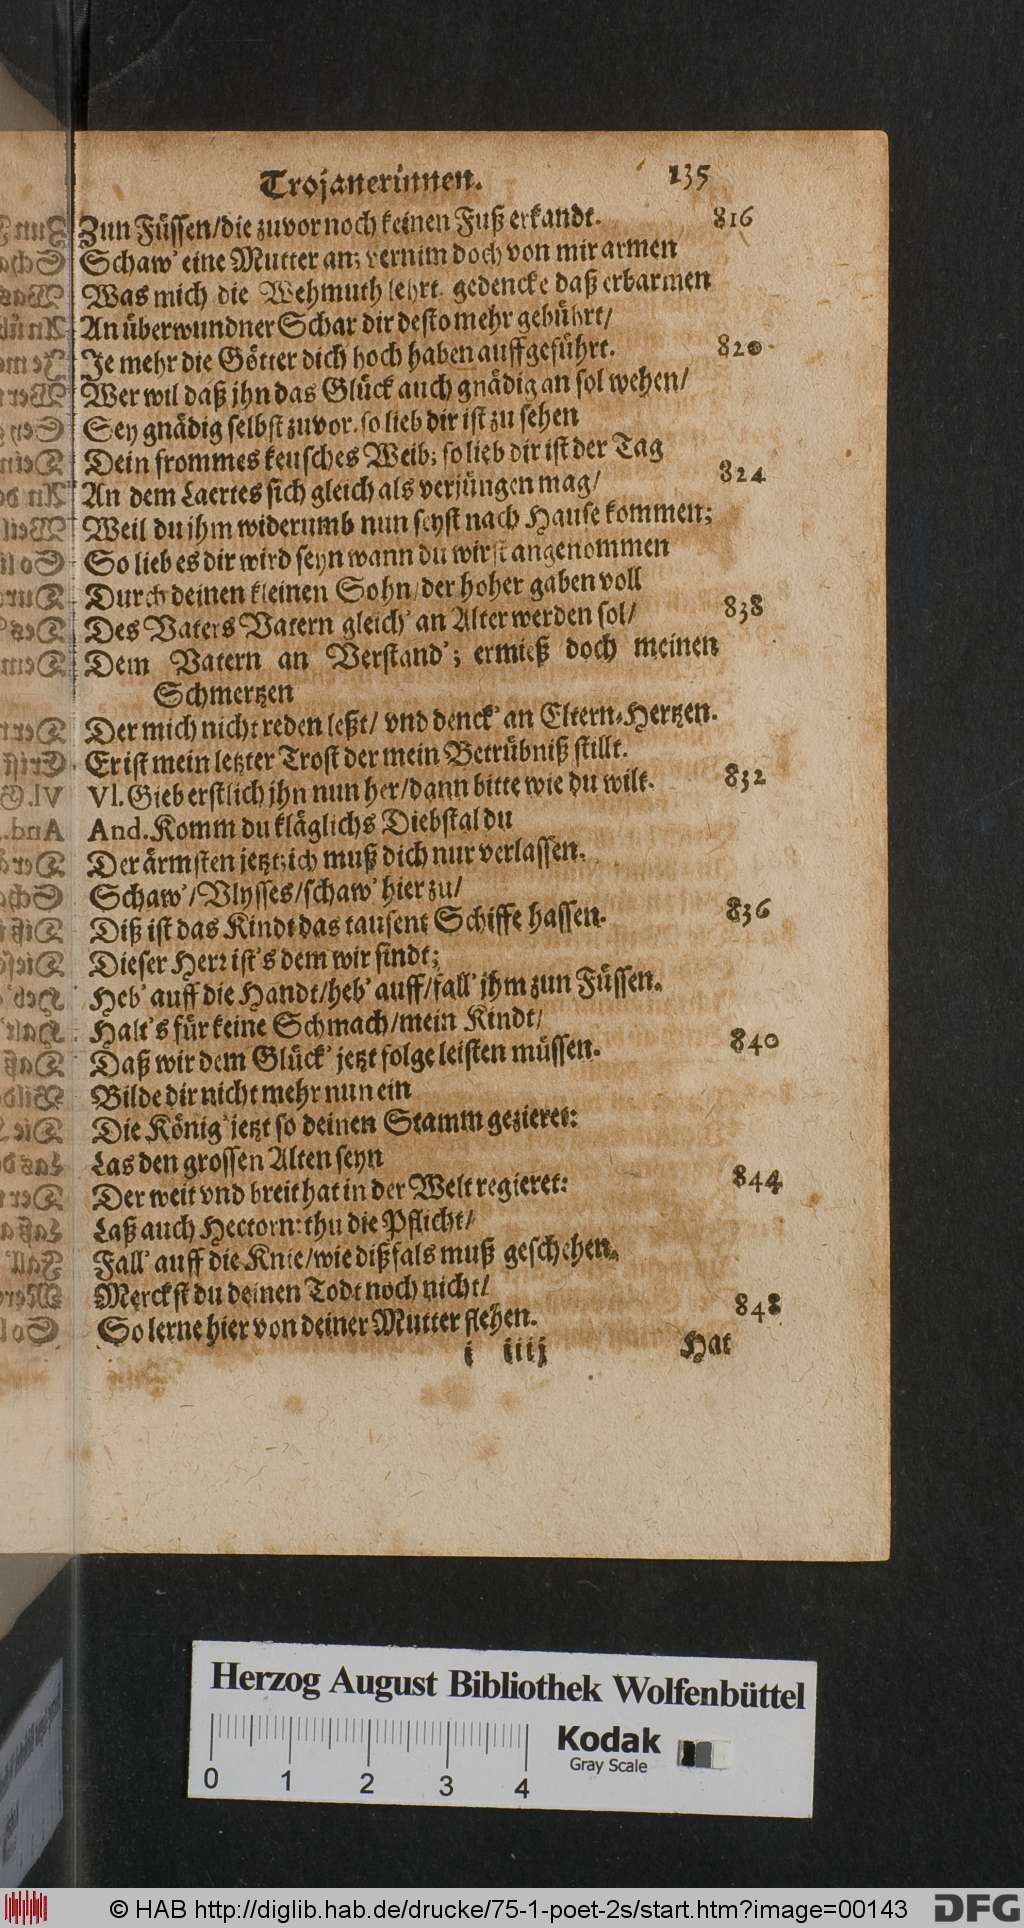 Trojanerinnen. 135
Zun Füssen/die zuvor noch keinen Fuß erkandt. 816
Schaw' eine Mutter an; vernim doch von mir armen
Was mich die Wehmuth lehrt. gedencke daß erbarmen
An überwundner Schar dir desto mehr gebührt/
Je mehr die Götter dich hoch haben auffgeführt. 820
Wer wil daß jhn das Glück auch gnädig an sol wehen/
Sey gnädig selbst zuvor. so lieb dir ist zu sehen
Dein frommes keusches Weib; so lieb dir ist der Tag
An dem Laertes sich gleich als verjüngen mag/ 824
Weil du jhm widerumb nun seyst nach Hause kommen;
So lieb es dir wird seyn wann du wirst angenommen
Durch deinen kleinen Sohn/der hoher gaben voll
Des Vaters Vatern gleich' an Alter werden sol/ 838
Dem Vatern an Verstand'; ermieß doch meinen
Schmertzen
Der mich nicht reden leßt/ vnd denck' an Eltern-Hertzen.
Er ist mein letzter Trost der mein Betrübniß stillt.
Vl. Gieb erstlich jhn nun her/dann bitte wie du wilt. 832
And. Komm du kläglichs Diebstal du
Der ärmsten jetzt; ich muß dich nur verlassen.
Schaw'/Vlysses/schaw' hier zu/
Diß ist das Kindt das tausent Schiffe hassen. 836
Dieser Herr ist's dem wir sindt;
Heb' auff die Handt/heb' auff/fall' jhm zun Füssen.
Halt's für keine Schmach/mein Kindt/
Daß wir dem Glück' jetzt folge leisten müssen. 840
Bilde dir nicht mehr nun ein
Die König' jetzt so deinen Stamm gezieret:
Las den grossen Alten seyn
Der weit vnd breit hat in der Welt regieret: 844
Laß auch Hectorn: thu die Pflicht/
Fall' auff die Knie/wie dißfals muß geschehen.
Merckst du deinen Todt noch nicht/
So lerne hier von deiner Mutter flehen. 848
i iiij Hat
Herzog August Bibliothek Wolfenbüttel
Kodak
Gray Scale
0 1 2 3 4
© HAB http://diglib.hab.de/drucke/75-1-poet-2s/start.htm?image=00143
DFG